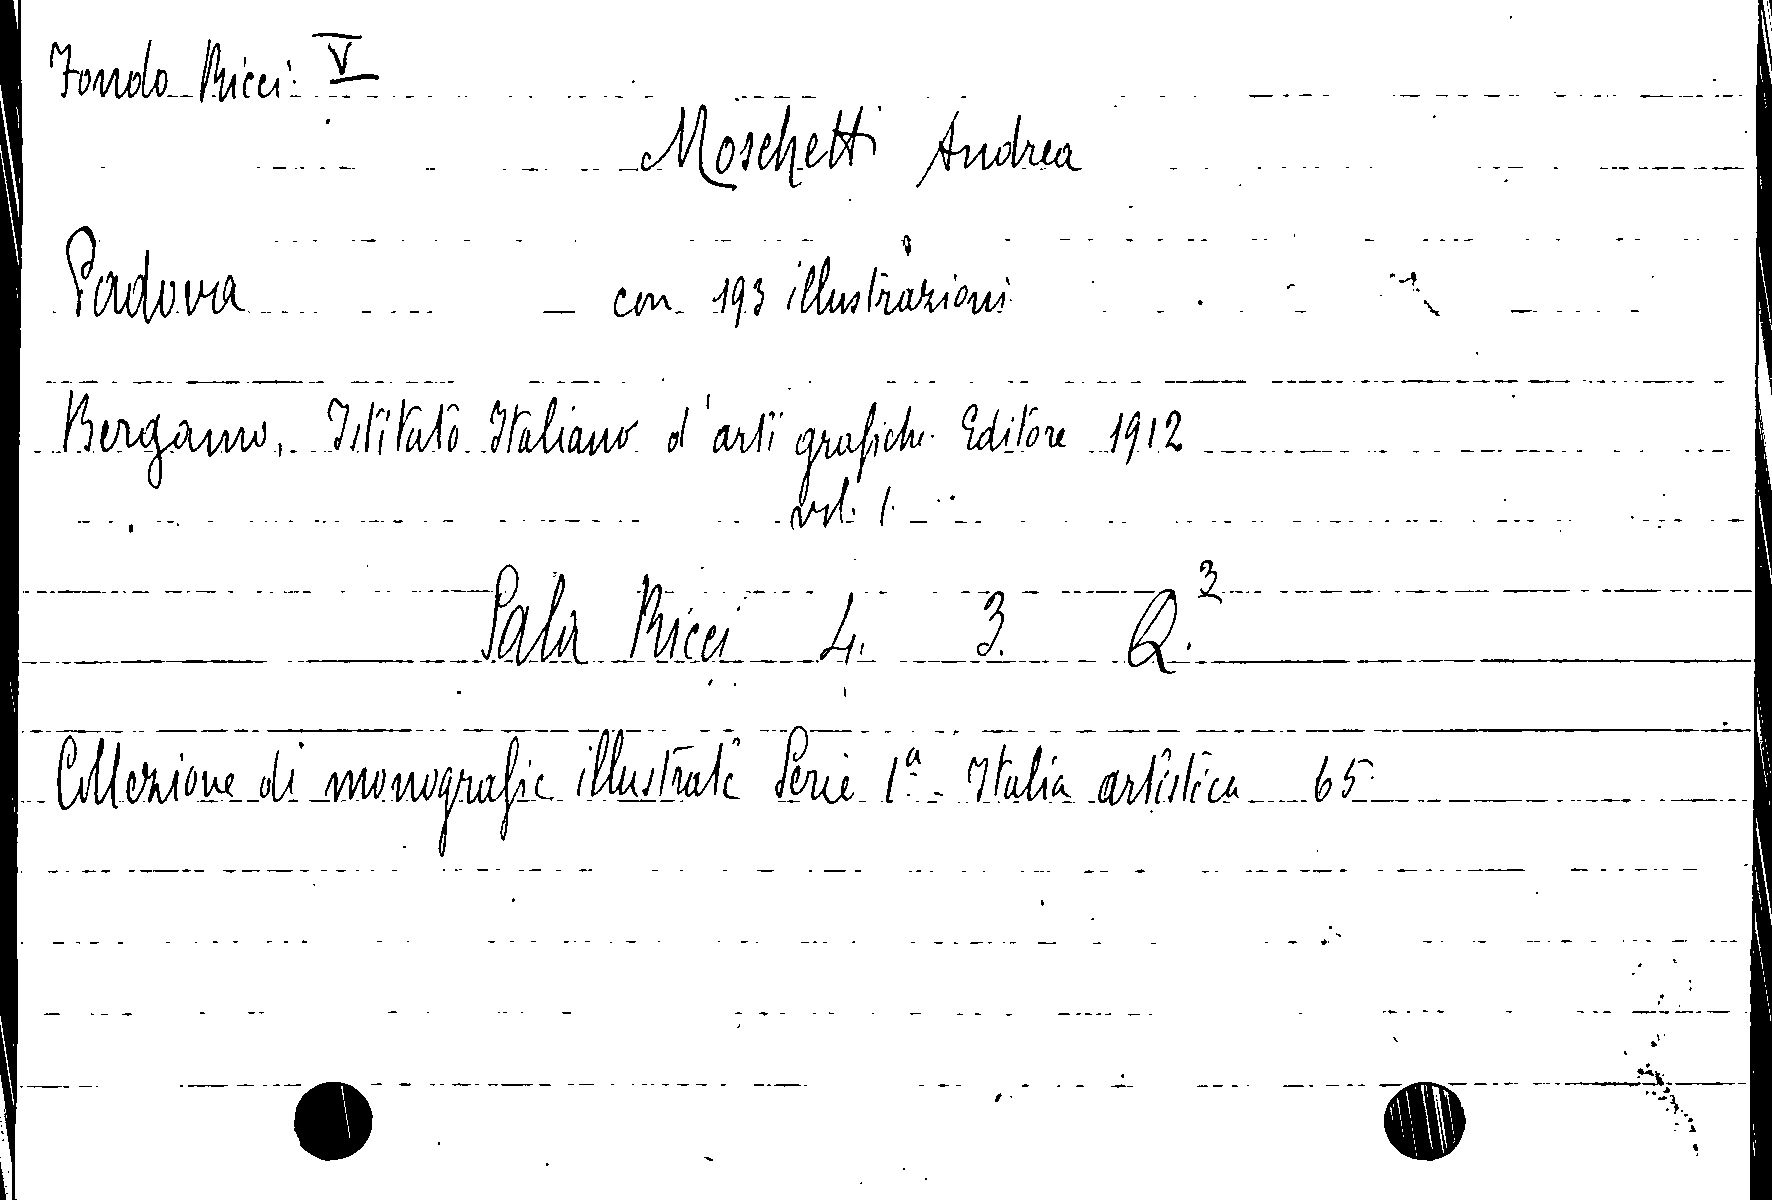 Fondo Ricci V
Moschetti Andrea
Padova — con 193 illustrazioni
Bergamo, Istituto Italiano d'arti grafiche Editore 1912
vol. 1.
Sala Ricci 4. 3. Q.3
Collezione di monografie illustrate Serie 1a - Italia artistica 65